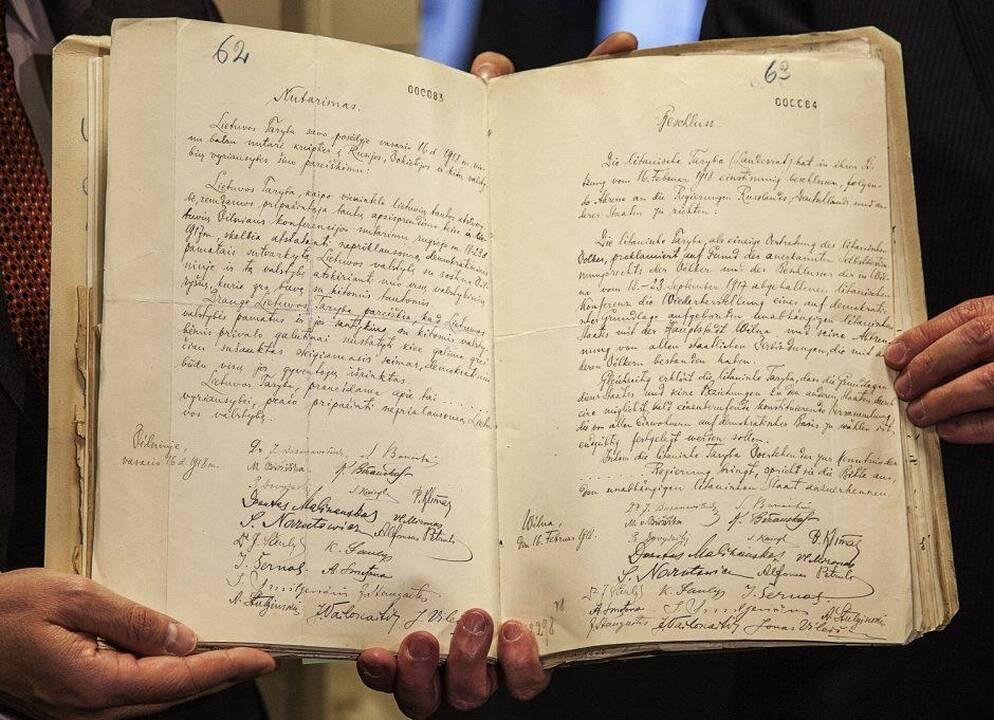 62
000083
Nutarimas.
Lietuvos Taryba savo posėdyje vasario 16 d. 1918 m. vie-
nu balsu nutarė kreiptis į Rusijos, Vokietijos ir kitų valsty-
bių vyriausybes šiuo pareiškimu:
Lietuvos Taryba, kaipo vienintelė lietuvių tautos atstovy-
bė, remdamos pripažintąja tautų apsisprendimo teise ir lie-
tuvių Vilniaus konferencijos nutarimu rugsėjo m. 18-23 d.
1917 m., skelbia atstatanti nepriklausomą, demokratiniais
pamatais sutvarkytą Lietuvos valstybę su sostine Vil-
niuje ir tą valstybę atskirianti nuo visų valstybinių
ryšių, kurie yra buvę su kitomis tautomis.
Drauge Lietuvos Taryba pareiškia, kad Lietuvos
valstybės pamatus ir jos santykius su kitomis valsty-
bėmis privalo galutinai nustatyti kiek galima grei-
čiau sušauktas steigiamasis seimas, demokratiniu
būdu visų jos gyventojų išrinktas.
Lietuvos Taryba, pranešdama apie tai . . . . . . . .
vyriausybei, prašo pripažinti nepriklausomą Lietu-
vos valstybę.
Vilniuje,
vasario 16 d. 1918 m.
Dr. J. Basanavičius
S. Banaitis
M. Biržiška
K. Bizauskas
P. Dovydaitis
S. Kairys
P. Klimas
Donatas Malinauskas
Vl. Mironas
S. Narutowicz
Alfonsas Petrulis
Dr. J. Šaulys
K. Šaulys
J. Šernas
A. Smetona
J. Smilgevičius
J. Staugaitis
A. Stulginskis
J. Vailokaitis
J. Vile
63
000084
Beschluss
Die litauische Taryba (Landesrat) hat in ihrer Sit-
zung vom 16. Februar 1918 einstimmig beschlossen, folgen-
de Adresse an die Regierungen Russlands, Deutschlands und an-
derer Staaten zu richten:
Die litauische Taryba, als einzige Vertretung des litauischen
Volkes, proklamiert auf Grund des anerkannten Selbstbestim-
mungsrechts der Völker und des Beschlusses der in Wil-
na vom 18.-23. September 1917 abgehaltenen litauischen
Konferenz die Wiederherstellung eines auf demokrati-
scher Grundlage aufgebauten unabhängigen litauischen
Staats mit der Hauptstadt Wilna und seine Abtren-
nung von allen staatlichen Verbindungen, die mit an-
deren Völkern bestanden haben.
Gleichzeitig erklärt die litauische Taryba, dass die Grundlagen
dieses Staates und seine Beziehungen zu den anderen Staaten durch
eine möglichst bald einzuberufende konstituierende Versammlung,
die von allen Einwohnern auf demokratischer Basis zu wählen ist
endgültig festgelegt werden sollen.
Indem die litauische Taryba Vorstehendes zur Kenntnis der
. . . . . . Regierung bringt, spricht sie die Bitte aus,
den unabhängigen litauischen Staat anzuerkennen.
Wilna,
den 16. Februar 1918.
Dr. J. Basanavičius
S. Banaitis
M. Biržiška
K. Bizauskas
P. Dovydaitis
S. Kairys
P. Klimas
Donatas Malinauskas
Vl. Mironas
S. Narutowicz
Alfonsas Petrulis
Dr. J. Šaulys
K. Šaulys
J. Šernas
A. Smetona
J. Smilgevičius
A. Stulginskis
J. Staugaitis
J. Vailokaitis
Jonas Vileišis